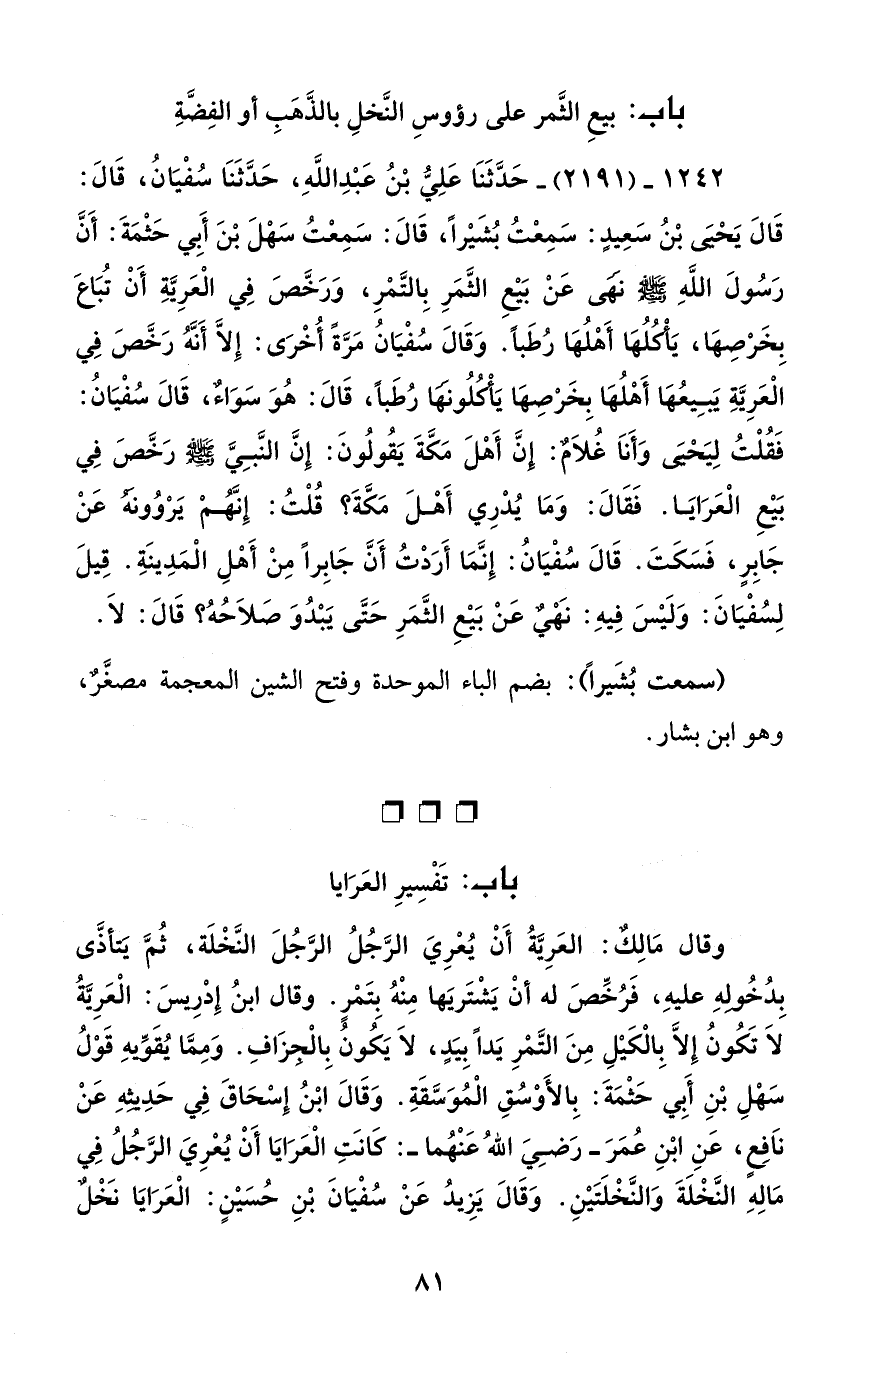 باب: بيعِ الثَّمر على رؤوسِ النَّخلِ بالذَّهَبِ أو الفِضَّةِ
١٢٤٢ ـ (٢١٩١) ـ حَدَّثَنَا عَلِيُّ بْنُ عَبْدِاللَّهِ، حَدَّثَنَا سُفْيَانُ، قَالَ:
قَالَ يَحْيَى بْنُ سَعِيدٍ: سَمِعْتُ بُشَيْراً، قَالَ: سَمِعْتُ سَهْلَ بْنَ أَبِي حَثْمَةَ: أَنَّ
رَسُولَ اللَّهِ ﷺ نَهَى عَنْ بَيْعِ الثَّمَرِ بِالتَّمْرِ، وَرَخَّصَ فِي الْعَرِيَّةِ أَنْ تُبَاعَ
بِخَرْصِهَا، يَأْكُلُهَا أَهْلُهَا رُطَباً. وَقَالَ سُفْيَانُ مَرَّةً أُخْرَى: إِلاَّ أَنَّهُ رَخَّصَ فِي
الْعَرِيَّةِ يَبِيعُهَا أَهْلُهَا بِخَرْصِهَا يَأْكُلُونَهَا رُطَباً، قَالَ: هُوَ سَوَاءٌ، قَالَ سُفْيَانُ:
فَقُلْتُ لِيَحْيَى وَأَنَا غُلاَمٌ: إِنَّ أَهْلَ مَكَّةَ يَقُولُونَ: إِنَّ النَّبِيَّ ﷺ رَخَّصَ فِي
بَيْعِ الْعَرَايَا. فَقَالَ: وَمَا يُدْرِي أَهْلَ مَكَّةَ؟ قُلْتُ: إِنَّهُمْ يَرْوُونَهُ عَنْ
جَابِرٍ، فَسَكَتَ. قَالَ سُفْيَانُ: إِنَّمَا أَرَدْتُ أَنَّ جَابِراً مِنْ أَهْلِ الْمَدِينَةِ. قِيلَ
لِسُفْيَانَ: وَلَيْسَ فِيهِ: نَهْيٌ عَنْ بَيْعِ الثَّمَرِ حَتَّى يَبْدُوَ صَلاَحُهُ؟ قَالَ: لاَ.
(سمعت بُشَيراً): بضم الباء الموحدة وفتح الشين المعجمة مصغَّرٌ،
وهو ابن بشار.
باب: تَفْسِيرِ العَرَايا
وقال مَالِكٌ: العَرِيَّةُ أَنْ يُعْرِيَ الرَّجُلُ الرَّجُلَ النَّخْلَة، ثُمَّ يَتأذَّى
بِدُخُولِهِ عليهِ، فَرُخِّصَ له أنْ يَشْتَرِيَها مِنْهُ بِتَمْرٍ. وقال ابنُ إِدْرِيسَ: الْعَرِيَّةُ
لاَ تَكُونُ إِلاَّ بِالْكَيْلِ مِنَ التَّمْرِ يَداً بِيَدٍ، لاَ يَكُونُ بِالْجِزَافِ. وَمِمَّا يُقَوِّيهِ قَوْلُ
سَهْلِ بْنِ أَبِي حَثْمَةَ: بِالأَوْسُقِ الْمُوَسَّقَةِ. وَقَالَ ابْنُ إِسْحَاقَ فِي حَدِيثِهِ عَنْ
نَافِعٍ، عَنِ ابْنِ عُمَرَ ـ رَضيَ اللهُ عَنْهُما ـ: كَانَتِ الْعَرَايَا أَنْ يُعْرِيَ الرَّجُلُ فِي
مَالِهِ النَّخْلَةَ وَالنَّخْلَتَيْنِ. وَقَالَ يَزِيدُ عَنْ سُفْيَانَ بْنِ حُسَيْنٍ: الْعَرَايَا نَخْلٌ
٨١